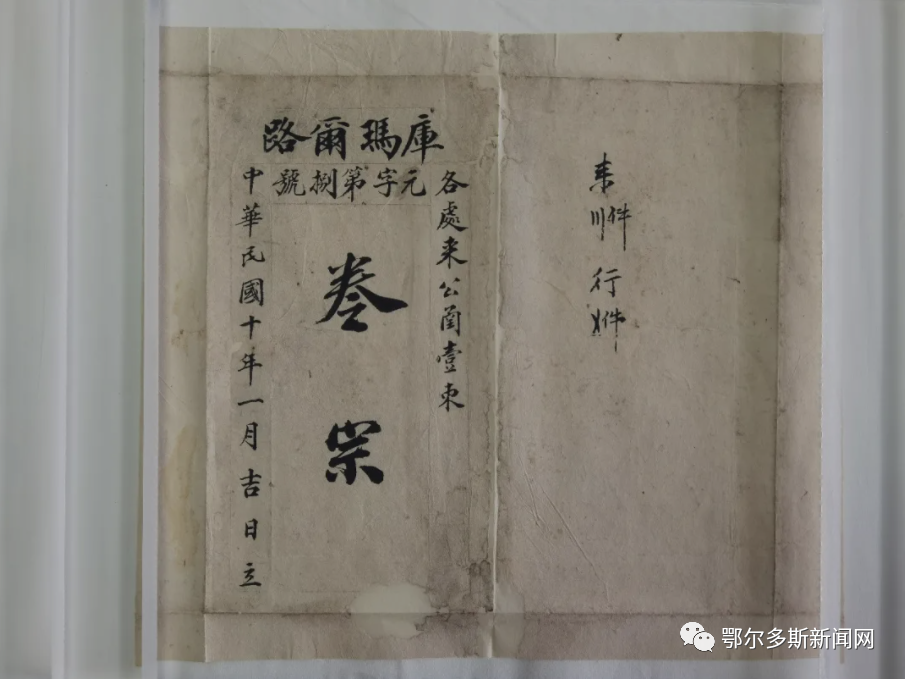 来〣件 行〤件
庫瑪爾路
元字第捌號
各處来公函壹束
卷宗
中華民國十年一月吉日立
鄂尔多斯新闻网